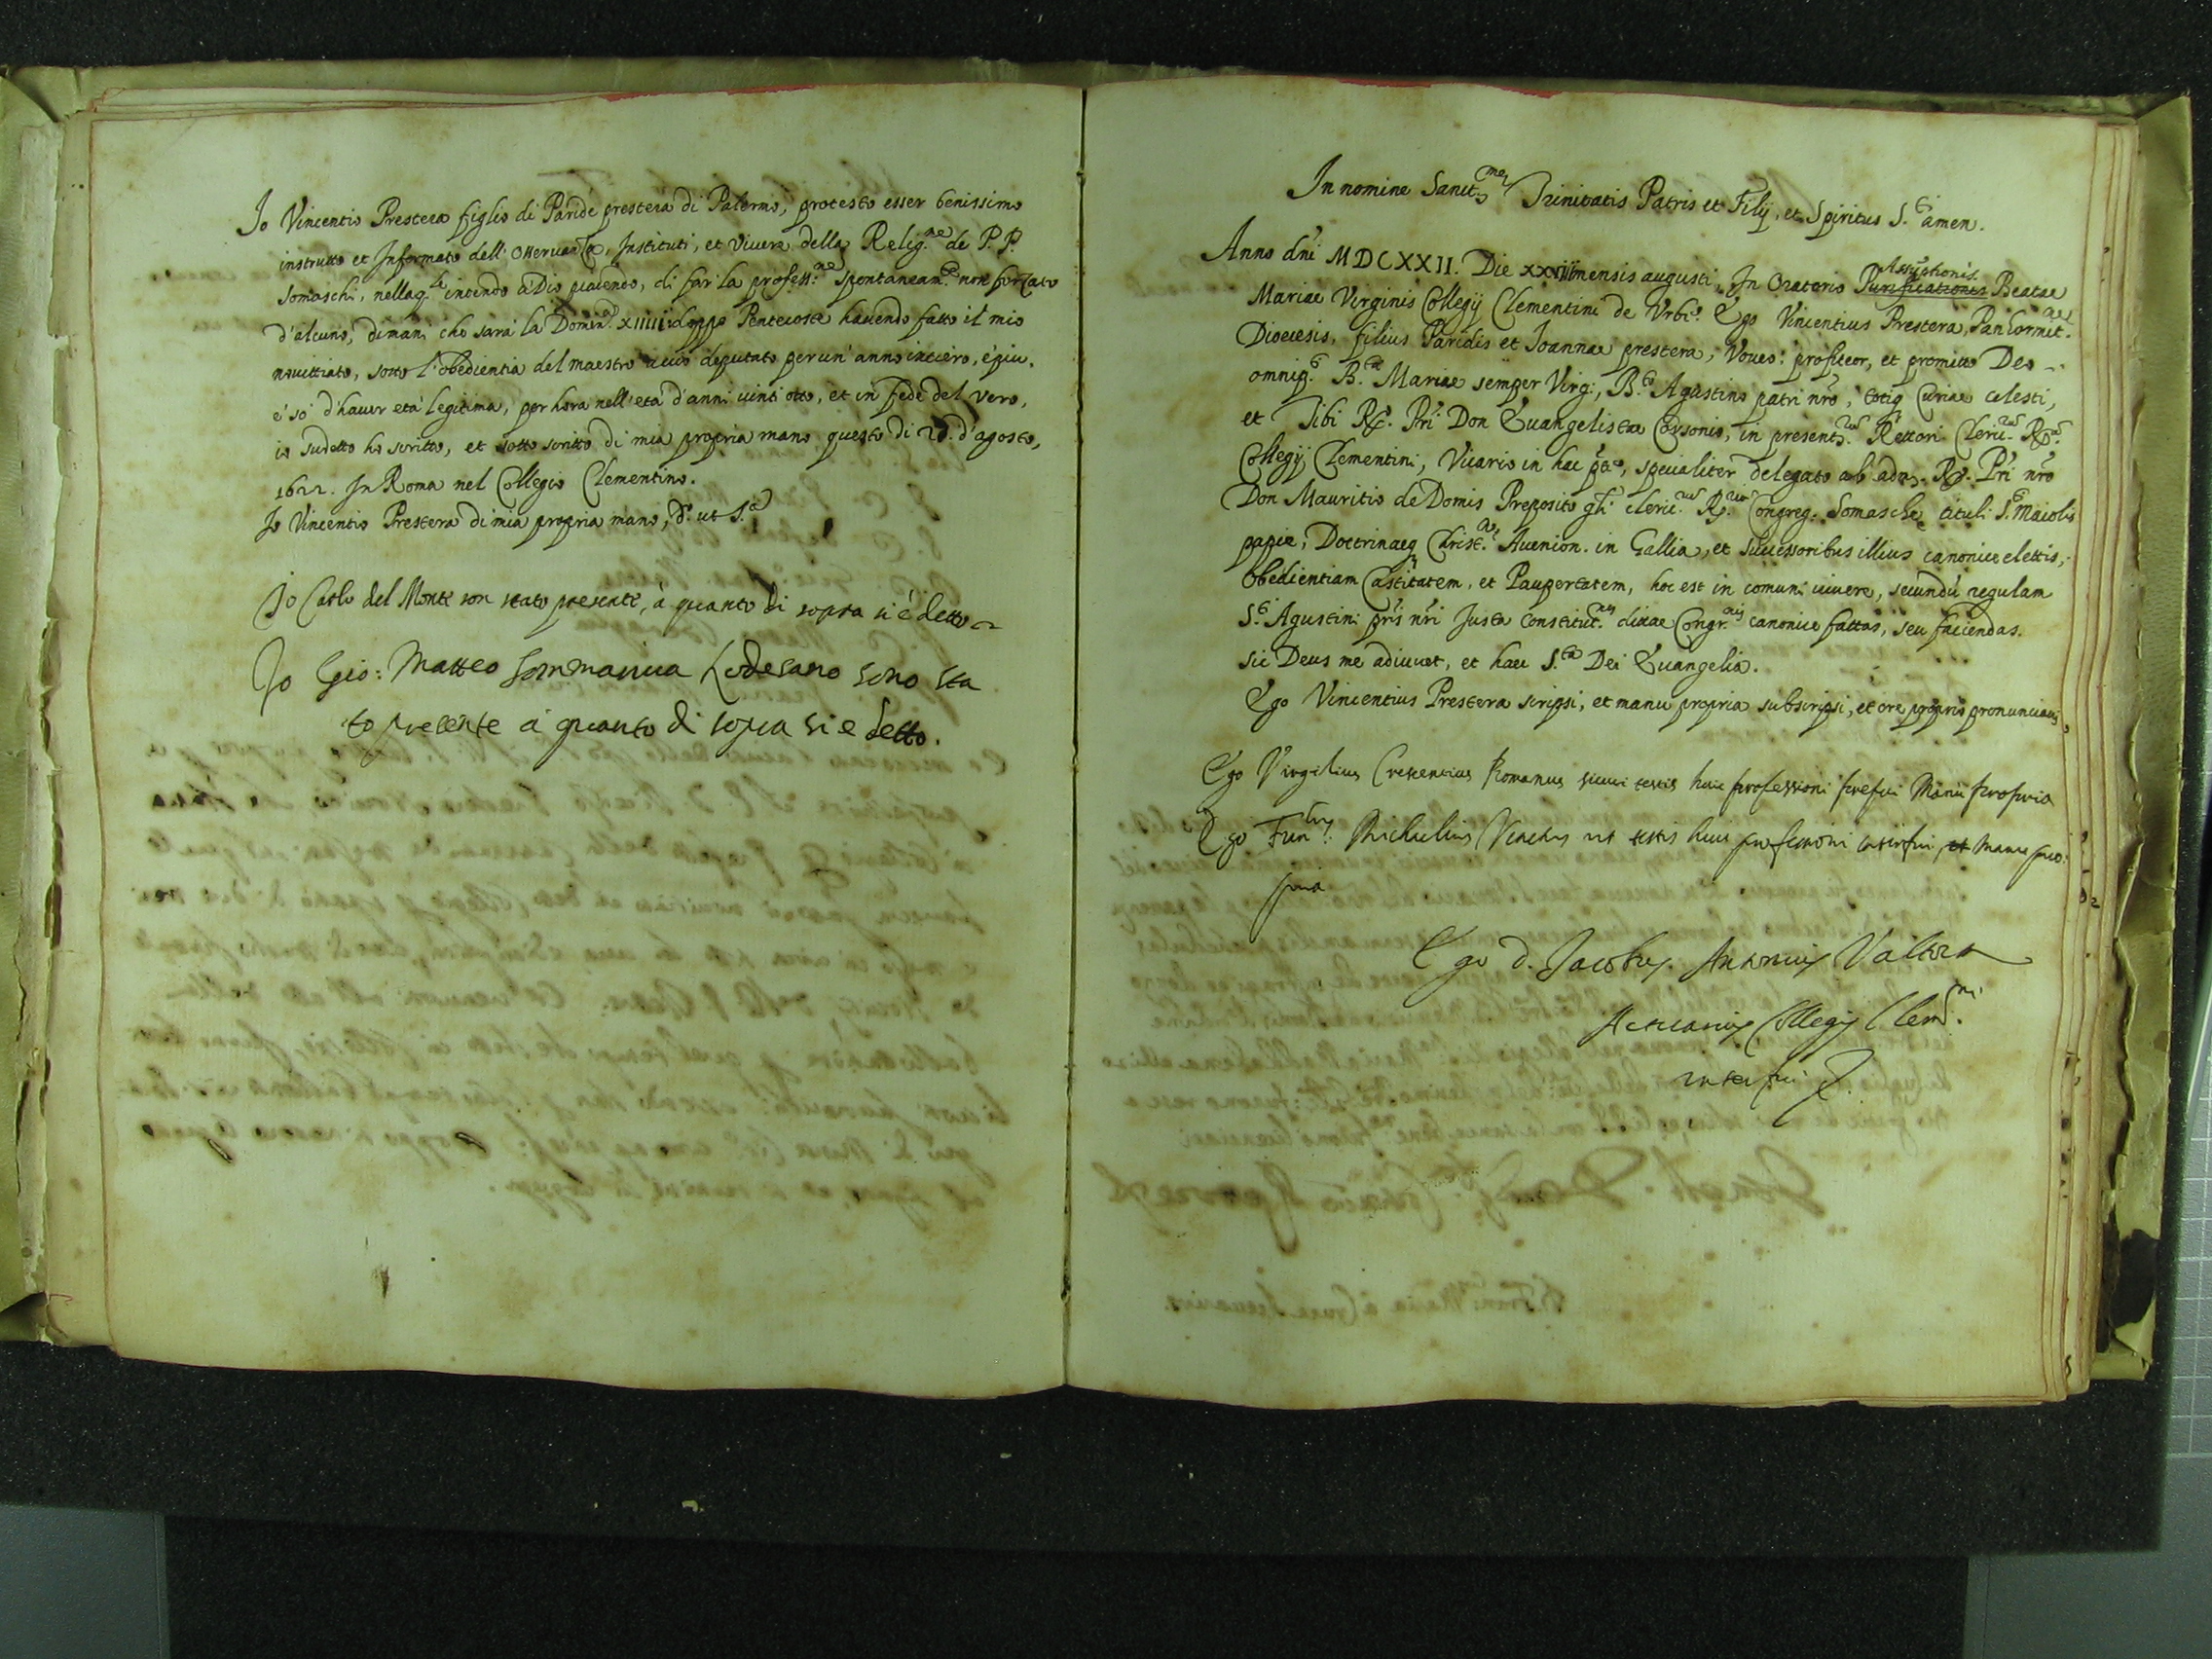 Io Vincentio Prestera figlio di Paride prestera di Palermo, protesto esser benissimo
instrutto et Informato dell'osservanza, Instituti, et vivere della Relig.ne de P.P.
Somaschi, nella q.le intendo à Dio piacendo, di far la profess.ne spontaneam.te non forzato
d'alcuno, dimani che sarà la Domin.ca XIIII. doppo Pentecoste havendo fatto il mio
novittiato, sotto l'obedientia del maestro à ciò deputato per un'anno intiero, é piu,
e só d'haver età legitima, per hora nell'età d'anni vinti otto, et in fede del vero,
io sudetto ho scritto, et sotto scritto di mia propria mano questo di 20. d'agosto,
1622. In Roma nel Collegio Clementino.
Io Vincentio Prestera di mia propria mano, ut S.a
Io Carlo del Monte son stato presente, à quanto di sopra si é detto
Io Gio: Matteo Sommariva Lodesano sono sta
to presente à quanto di sopra si e detto.
In nomine Sanct.mae Trinitatis Patris et Filij, et Spiritus S.ti amen.
Anno dni MDCXXII. Die XXVIII mensis augusti, In Oratorio Purificationis Assuptionis Beatae
Mariae Virginis Collegij Clementini de Urbe. Ego Vincentius Prestera, Panhormit.nae
Diocesis, filius Paridis et Joannae prestera, Voveo: profiteor, et promitto Deo
omnip.ti B.tae Mariae semper Virgi, B.to Agustino patri nro, totiq Curiae celesti,
et Tibi R.do Pri Don Evangelistae Corsonio, in presentia Rettori Cleric. R.
Collegij Clementini, Vicario in hac pte, specialiter delegato ab adm. R. Pri nro
Don Mauritio de Domis Preposito gli cleric. R. Congreg. Somaschae tituli S.ti Maioli
papiae, Doctrinaeq Christ.ae Avenion. in Gallia, et successoribus illius canonice elettis,
Obedientiam Castitatem, et Paupertatem, hoc est in comuni vivere, secundu regulam
S.ti Agustini pris nri Justa Constitut.nes dictae Congr.nis canonice fattas, seu faciendas.
Sic Deus me adiuvet, et haec S.ta Dei Evangelia.
Ego Vincentius Prestera scripsi, et manu propria subscripsi, et ore proprio pronunciavi
Ego Virgilius Crescentius Romanus sicuti testis huic professioni prefui Manu propria
Ego Michaelius Venetus ut testis huic professioni interfui et manu pro:
pria
Ego d. Jacobus Antonius Valtor
Actuarius Collegij Clem.ni
interfui